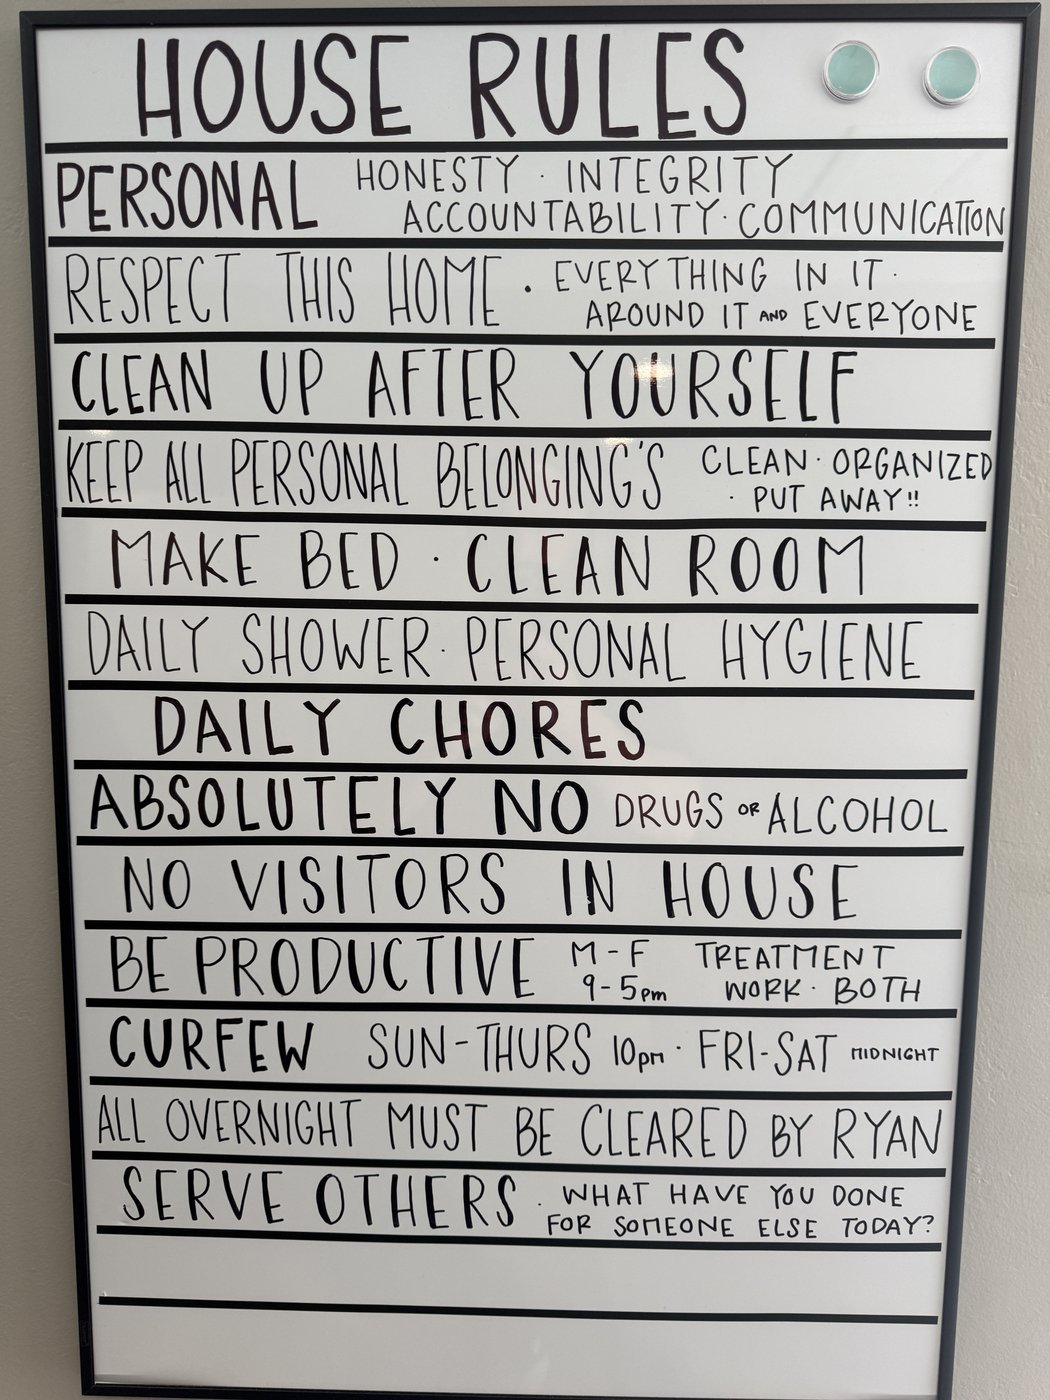 HOUSE RULES
PERSONAL HONESTY · INTEGRITY
ACCOUNTABILITY · COMMUNICATION
RESPECT THIS HOME · EVERYTHING IN IT ·
AROUND IT AND EVERYONE
CLEAN UP AFTER YOURSELF
KEEP ALL PERSONAL BELONGING'S CLEAN · ORGANIZED
· PUT AWAY!!
MAKE BED · CLEAN ROOM
DAILY SHOWER · PERSONAL HYGIENE
DAILY CHORES
ABSOLUTELY NO DRUGS OR ALCOHOL
NO VISITORS IN HOUSE
BE PRODUCTIVE M-F TREATMENT
9-5pm WORK · BOTH
CURFEW SUN-THURS 10pm · FRI-SAT MIDNIGHT
ALL OVERNIGHT MUST BE CLEARED BY RYAN
SERVE OTHERS · WHAT HAVE YOU DONE
FOR SOMEONE ELSE TODAY?